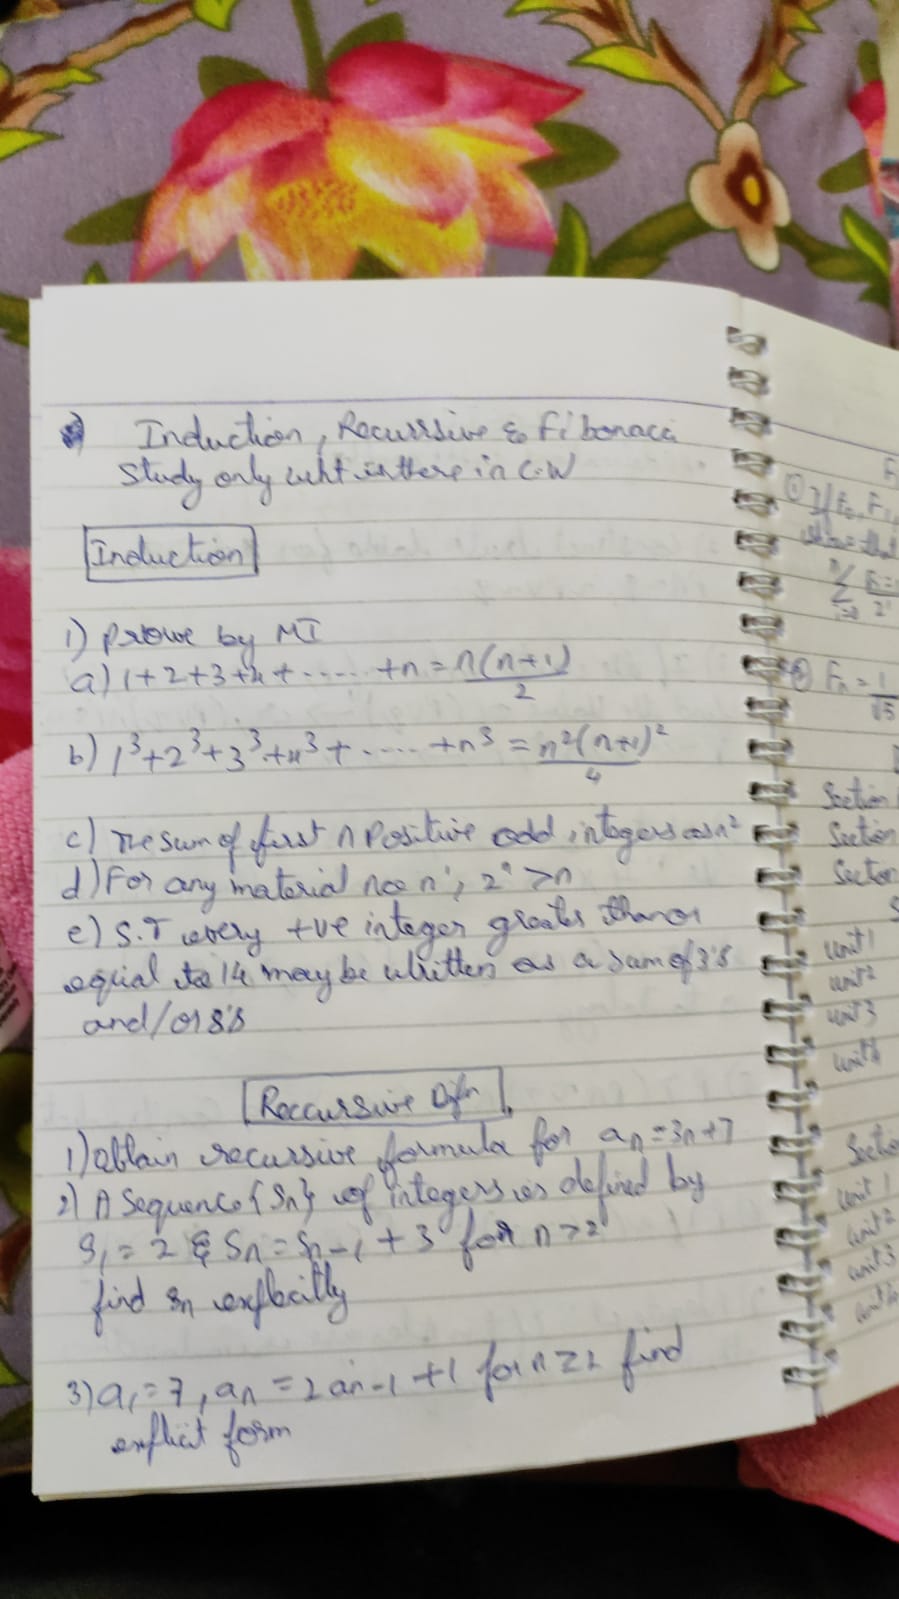 Induction, Recurrsive & Fibonacci
Study only wht is there in C.W
Induction
1) prove by MI
a) 1+2+3+4+.....+n = n(n+1)
2
b) 1³+2³+3³+4³+.....+n³ = n²(n+1)²
4
c) The sum of first n positive odd integers is n²
d) For any material no n', 2ⁿ>n
e) S.T every +ve integer greater than or
equal to 14 may be written as a sum of 3's
and/or 8's
Reccursive Dfn
1) obtain recursive formula for an = 3n+7
2) A Sequence {Sn} of integers is defined by
S1 = 2 & Sn = Sn-1 + 3 for n>2
find Sn explicitly
3) a1 = 7, an = 2an-1 +1 for n≥2 find
explicit form
① If F0, F1,
show that
Fn = 1
√5
Section
Section
Section
unit 1
unit 2
unit 3
unit
Section
unit 1
unit 2
unit 3
unit